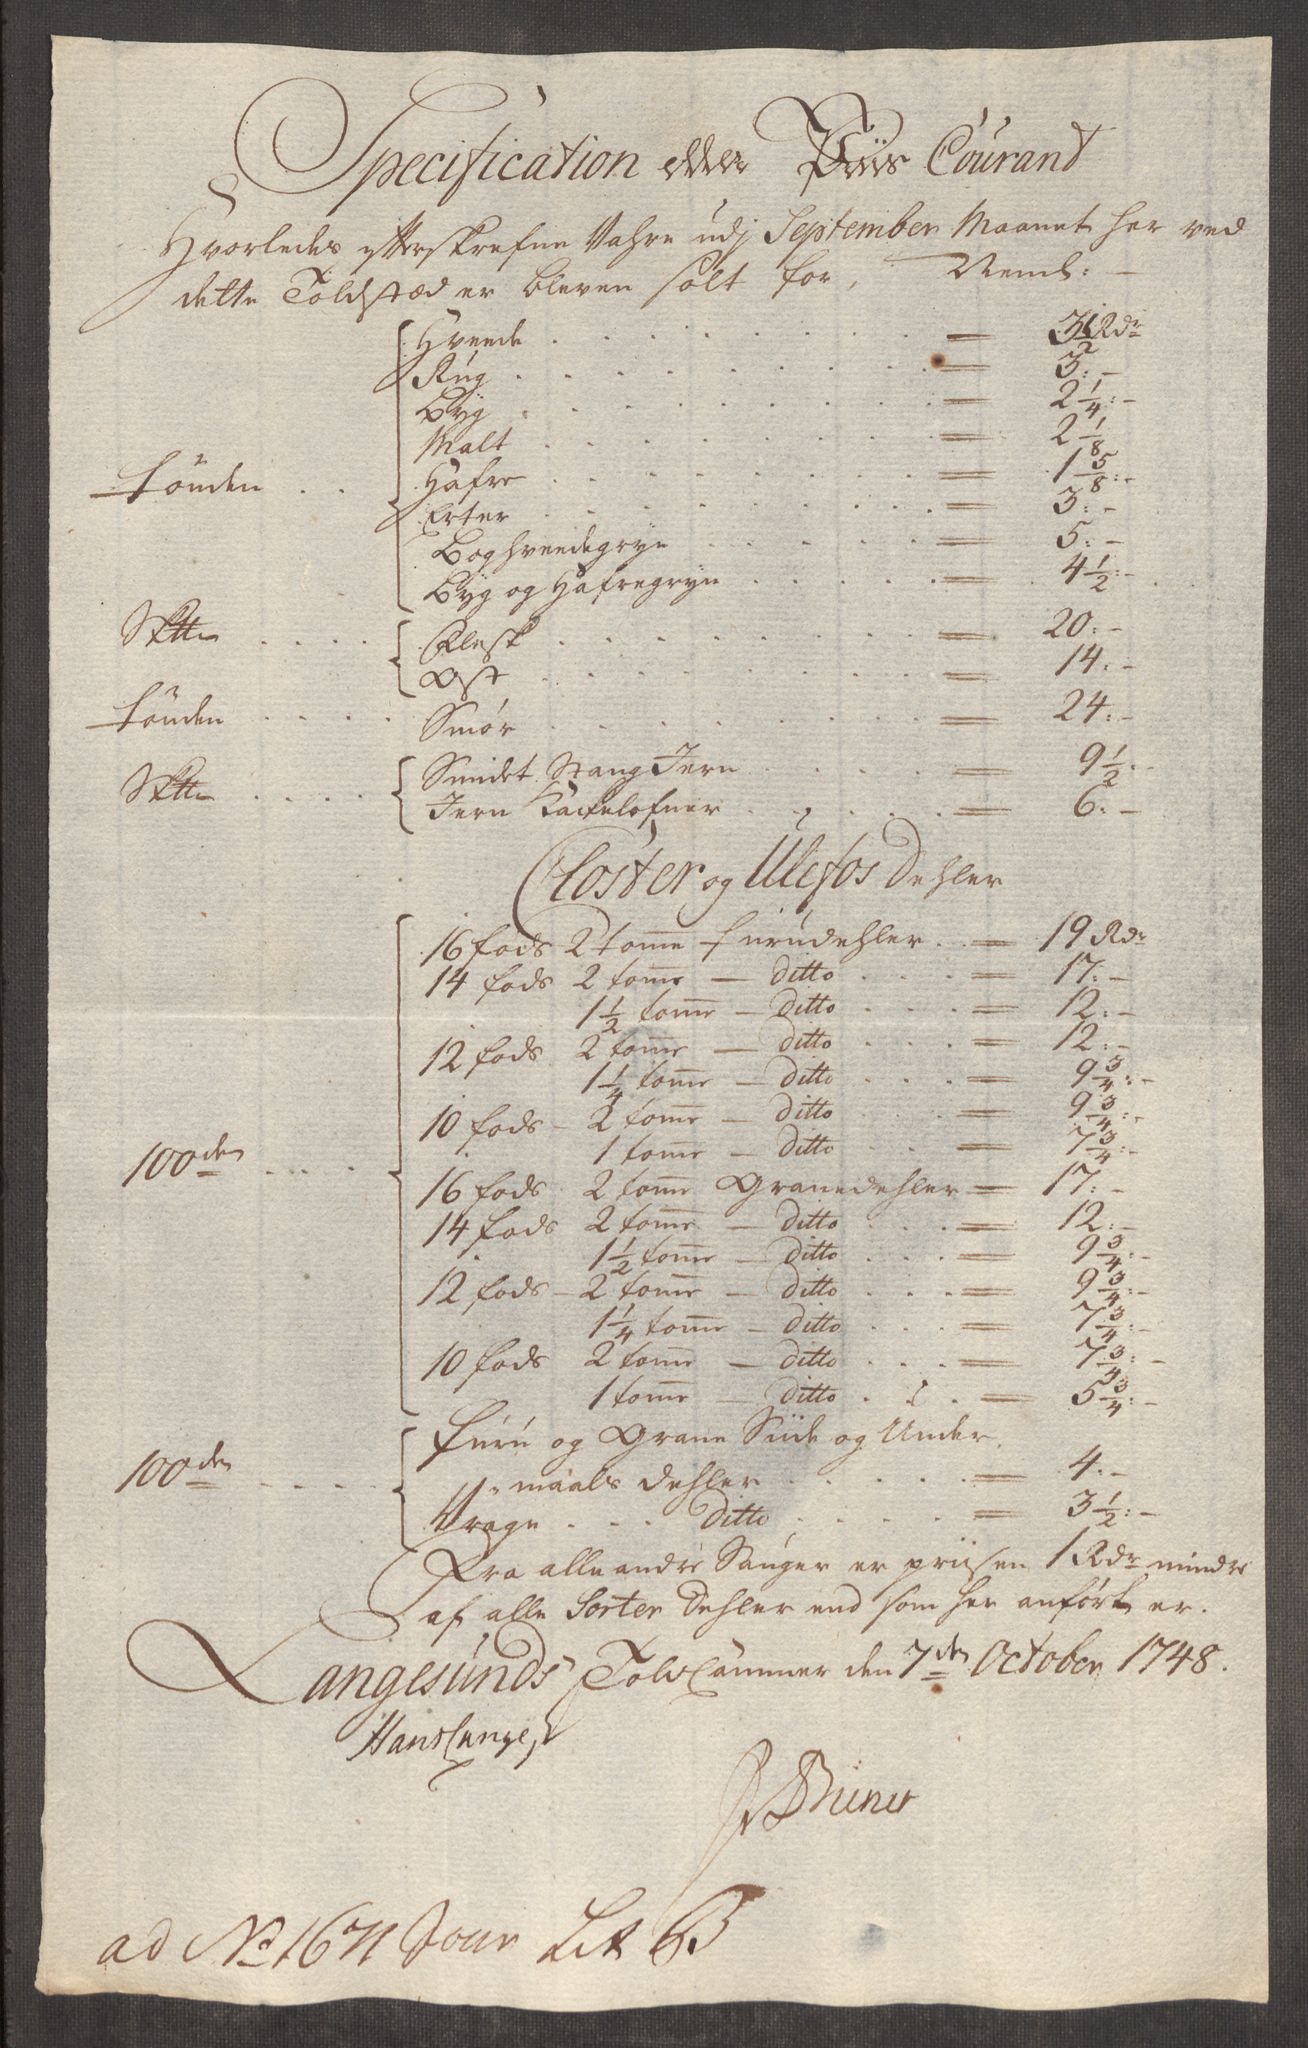 Specification eller Priis Courant
Hvorledes efterskrefne Vahre udj September Maanet her ved
dette Toldstæd er bleven solt for, Neml: —
Tönden . . Hvede . . . = 3 1/2 Rdr
Rug . . . = 3: —
Byg . . . = 2 1/4: —
Malt . . . = 2 1/8
Hafre . . . = 1 5/8: —
Erter . . . = 3: —
Boghvedegryn . . . = 5: —
Byg og Hafregryn . . . = 4 1/2: —
. . . . Flesk . . . = 20: —
Ost . . . = 14: —
Tönden . . . . Smör . . . = 24: —
. . . . Smidet Stang Jern . . . = 9 1/2: —
Jern Kackelofner . . . = 6: —
Closter og Ulefos Dehler
100den . . . . 16 fods 2 tomme furudehler . = 19 Rdr
14 fods 2 tomme — ditto . . . = 17: —
1 1/2 tomme — ditto . . . = 12: —
12 fods 2 tomme — ditto . . . = 12: —
1 1/4 tomme — ditto . . . = 9 3/4: —
10 fods — 2 tomme — ditto . . . = 9 3/4: —
1 tomme — ditto . . . = 7 3/4: —
16 fods 2 tomme Granedehler = 17: —
14 fods 2 tomme — ditto . . . = 12: —
1 1/2 tomme — ditto . . . = 9 3/4: —
12 fods — 2 tomme — ditto . . . = 9 3/4: —
1 1/4 tomme — ditto . . . = 7 3/4: —
10 fods 2 tomme — ditto . . . = 7 3/4: —
1 tomme — ditto . . . = 5 3/4: —
100den . . . . Furu og Grane Siide og Under
maals dehler . . . = 4: —
Vrage . . . ditto . . . = 3 1/2: —
Fra alle andre Sauger er priisen 1 Rdr mindre
af alle Sorter Dehler end som her anfört er.
Langesunds Toldcammer den 7den October 1748.
Hans
ad No 1671 Jour Lit B